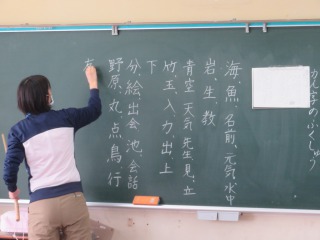 かん字のふくしゅう
海、魚、名前、元気、水中
岩、生、教
青空、天気、先生、見、立
竹、玉、入、力、出、上
下
分、絵、出会、池、会話
野原、丸、点、鳥、行